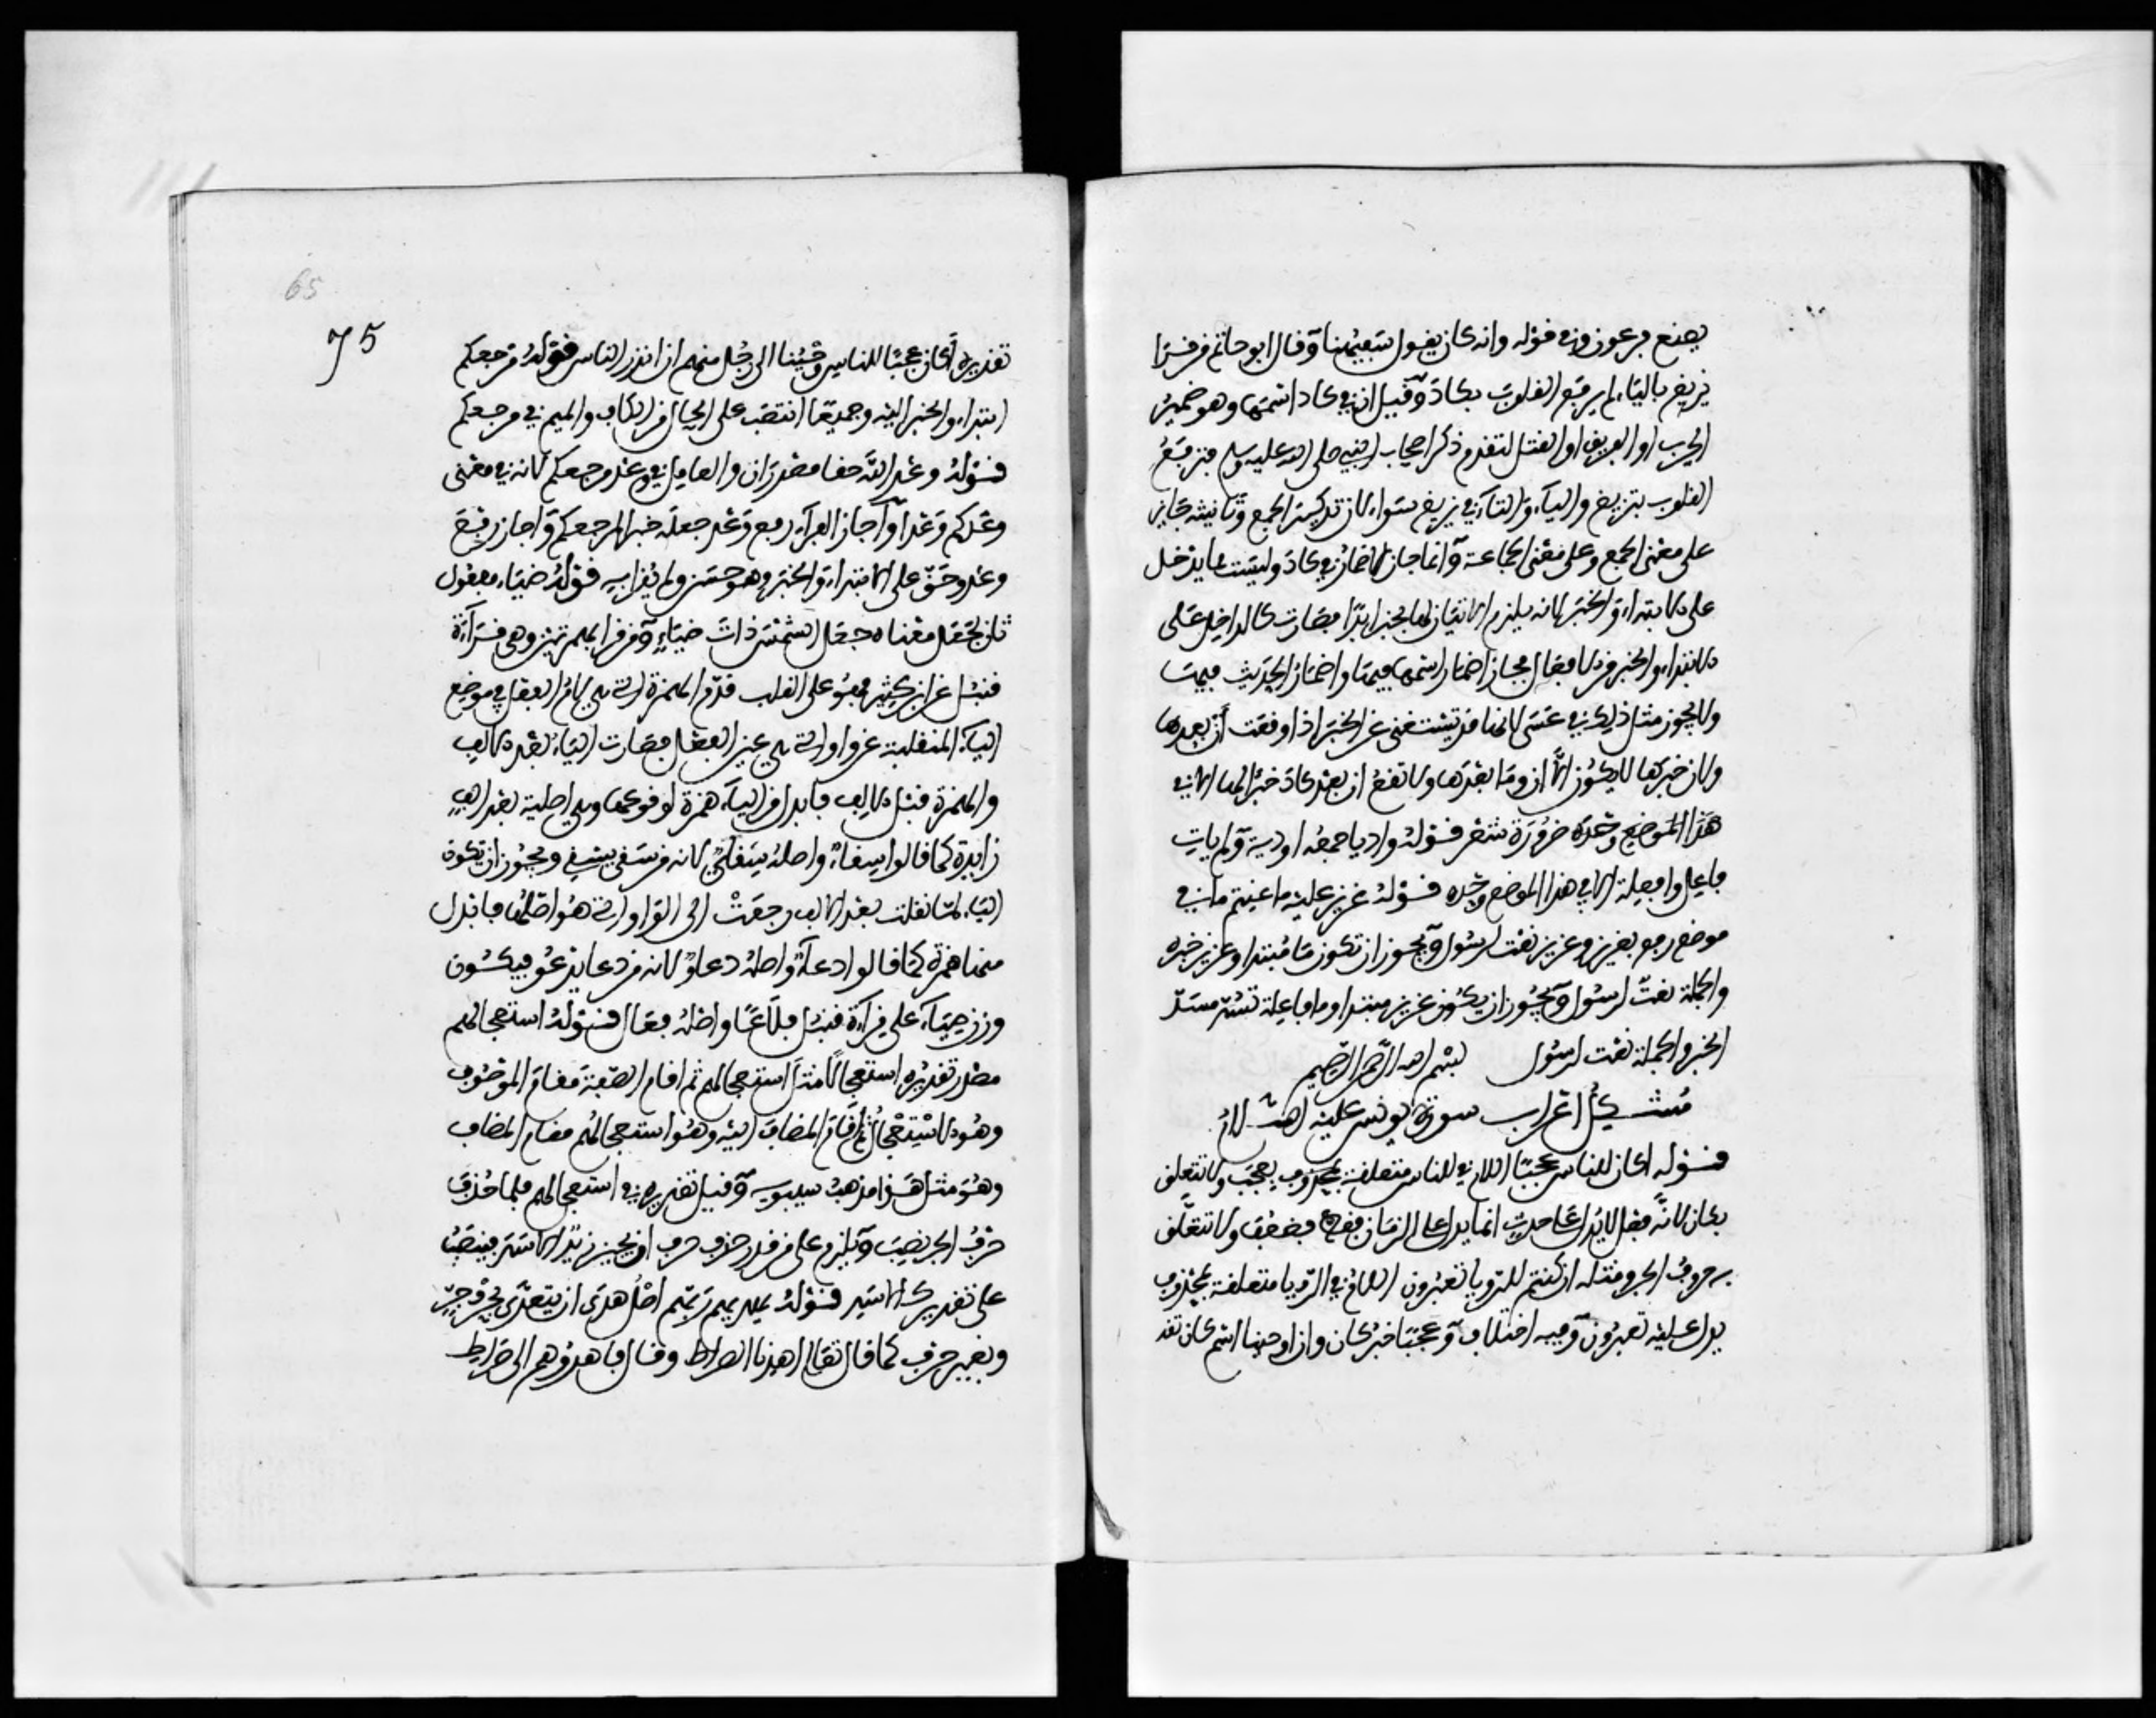 يصنع فرعون وفي قوله وانه كان يقول سفيهنا وقال ابو حاتم من قرا
يزيغ بالياء لم يرفع القلوب بكاد وقيل ان في كاد اسمها وهو ضمير
الحزب او الفريق او القبيل لتقدم ذكر اصحاب النبي صلى الله عليه وسلم فترفع
القلوب بتزيغ والياء والتاء في يزيغ سواء لان تذكير الجمع وتانيثه جايز
على معنى الجمع وعلى معنى الجماعة وانما جاز الاضمار في كاد وليست مما يدخل
على الابتداء والخبر لانه يلزم الاتيان لها بخبر ابدا فصارت كالداخل على
الابتداء والخبر من الافعال فجاز اضمار اسمها فيها واضمار الحديث فيها
ولا يجوز مثل ذلك في عسى لانها قد تستغنى عن الخبر اذا وقعت أن بعدها
ولان خبرها لا يكون الا ان وما بعدها ولا تقع ان بعد كاد خبرا لها الا في
هذا الموضع وحده ضرورة شعر قوله واديا جمعه اودية ولم يات
فاعل وافعلة الا في هذا الموضع وحده قوله عزيز عليه ما عنتم ما في
موضع رفع بعزيز وعزيز نعت لرسول ويجوز ان تكون ما مبتدا وعزيز خبره
والجملة نعت لرسول ويجوز ان يكون عزيز مبتدا وما فاعلة تسد مسد
الخبر والجملة نعت لرسول بسم الله الرحمن الرحيم
مشكل اعراب سورة يونس عليه السلام
قوله اكان للناس عجبا اللام في للناس متعلقة بمحذوف بعجب ولا تتعلق
بكان لانه فعل لا يدل على حدث انما يدل على الزمان فقط فضعف ولا تتعلق
به حروف الجر ومثله ان كنتم للرويا تعبرون اللام في الرويا متعلقة بمحذوف
يدل عليه تعبرون وفيه اختلاف وعجبا خبر كان وان اوحينا اسم كان تقد
65
75
تقديره أكان عجبا للناس وحينا الى رجل منهم ان انذر الناس قوله مرجعكم
ابتداء والخبر اليه وجميعا انتصب على الحال من الكاف والميم في مرجعكم
قوله وعد الله حقا مصدران والعامل في وعد مرجعكم لانه في معنى
وعدكم وعدا واجاز الفراء رفع وعد جعله خبرا لمرجعكم واجاز رفع
وعد وحق على الابتداء والخبر وهو حسن ولم يقرا به قوله ضياء مفعول
ثان لجعل معناه جعل الشمس ذات ضياء ومن قرا بهمزتين وهي قراءة
قنبل عن ابن كثير فهو على القلب قدم الهمزة التي هي لام الفعل في موضع
الياء المنقلبة عن واو التي هي عين الفعل فصارت الياء بعد الالف
والهمزة قبل الالف فابدل من الياء همزة لوقوعها وهي اصلية بعد الف
زايدة كما قالوا سقاء واصله سقاي لانه من سقى يسقي ويجوز ان تكون
الياء لما نقلت بعد الالف رجعت الى الواو التي هو اصلها فابدل
منها همزة كما قالوا دعاء واصله دعاو لانه من دعا يدعو فيكون
وزن ضياء على قراءة قنبل فلاعا واصله فعال قوله استعجالهم
مصدر تقديره استعجالا مثل استعجالهم ثم اقام الصفة مقام الموصوف
وهو الاستعجال ثم اقام المضاف اليه وهو استعجالهم مقام المضاف
وهو مثل هذا مذهب سيبويه وقيل تقديره في استعجالهم فلما حذف
حرف الجر نصب ويلزم على من قدر حذف حرف ان يجيز زيد الاسد فينصب
على تقدير كالاسد قوله يهديهم ربهم اصل هدى ان يتعدى بحرف جر
وبغير حرف كما قال تعالى اهدنا الصراط وقال فاهدوهم الى صراط